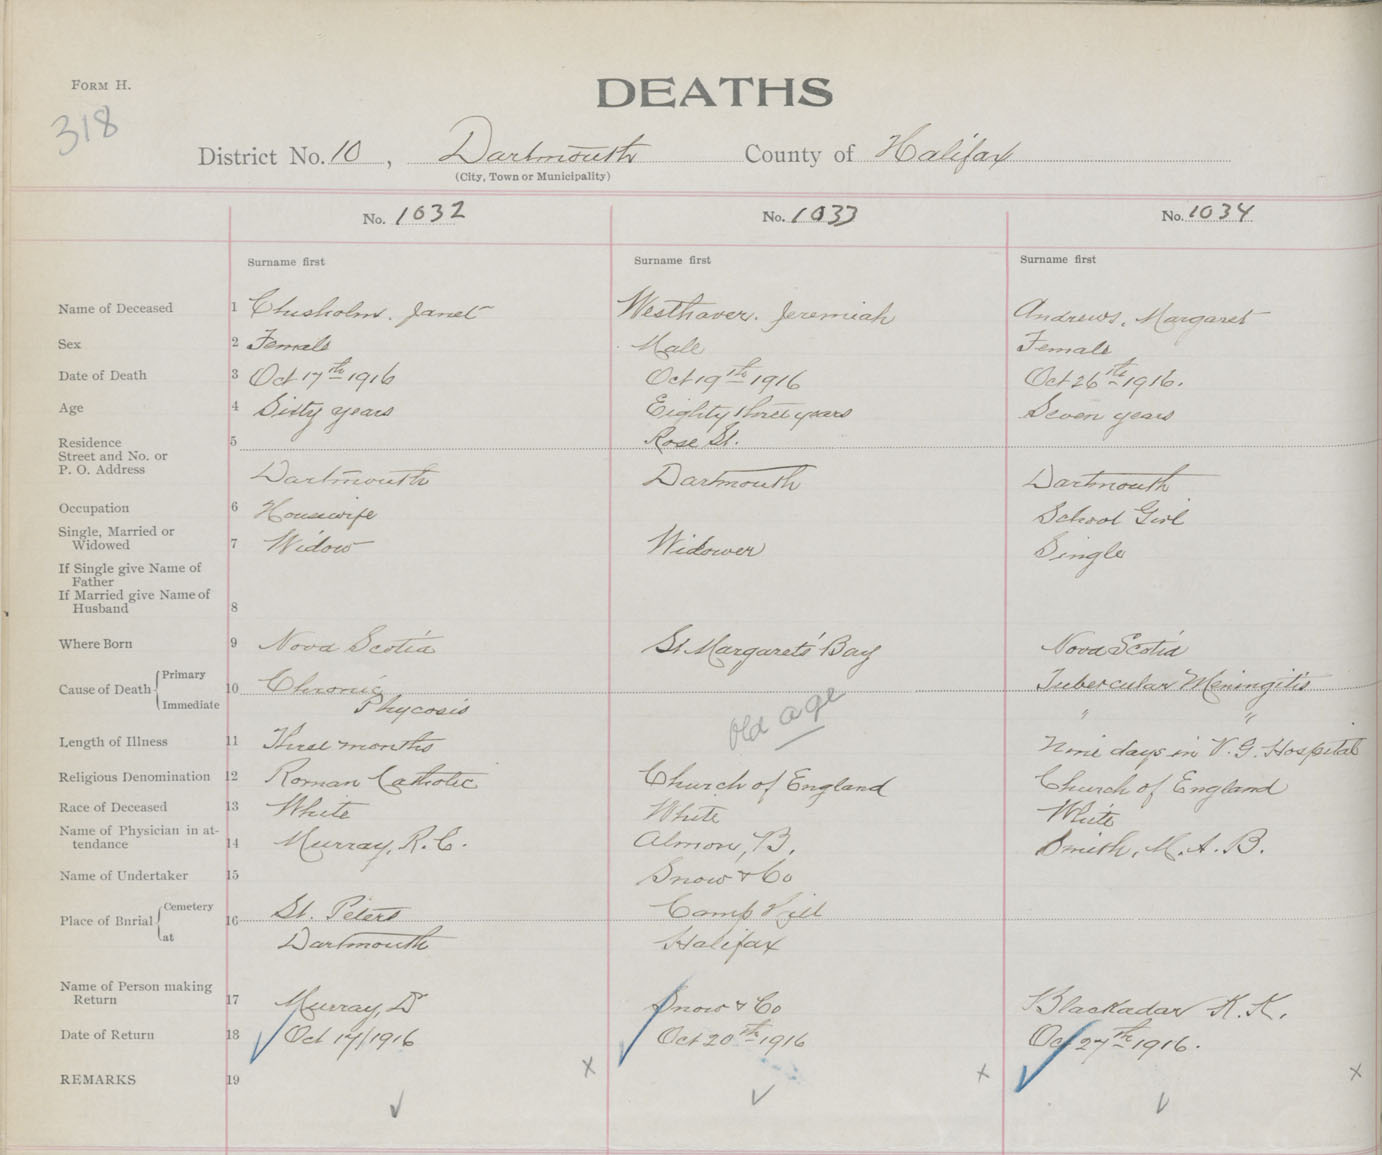 Form H.
DEATHS
318
District No. 10, Dartmouth County of Halifax
(City, Town or Municipality)
No. 1032 No. 1033 No. 1034
Surname first Surname first Surname first
Name of Deceased 1 Chisholm, Janet Westhaver, Jeremiah Andrews, Margaret
Sex 2 Female Male Female
Date of Death 3 Oct 17th 1916 Oct 19th 1916 Oct 26th 1916.
Age 4 Sixty years Eighty three years Seven years
Residence 5 Rose St.
Street and No. or
P. O. Address Dartmouth Dartmouth Dartmouth
Occupation 6 Housewife School Girl
Single, Married or
Widowed 7 Widow Widower Single
If Single give Name of
Father
If Married give Name of
Husband 8
Where Born 9 Nova Scotia St Margaret's Bay Nova Scotia
Cause of Death Primary 10 Chronic Tubercular Meningitis
Immediate Phycosis Old age " "
Length of Illness 11 Three months Nine days in V. G. Hospital
Religious Denomination 12 Roman Catholic Church of England Church of England
Race of Deceased 13 White White White
Name of Physician in at-
tendance 14 Murray, R. C. Almon, B. Smith, M. A. B.
Name of Undertaker 15 Snow & Co
Place of Burial Cemetery 16 St. Peters Camp Hill
at Dartmouth Halifax
Name of Person making
Return 17 Murray, D Snow & Co Blackadar K. K.
Date of Return 18 Oct 17/1916 Oct 20th 1916 Oct 27th 1916.
REMARKS 19 x x x